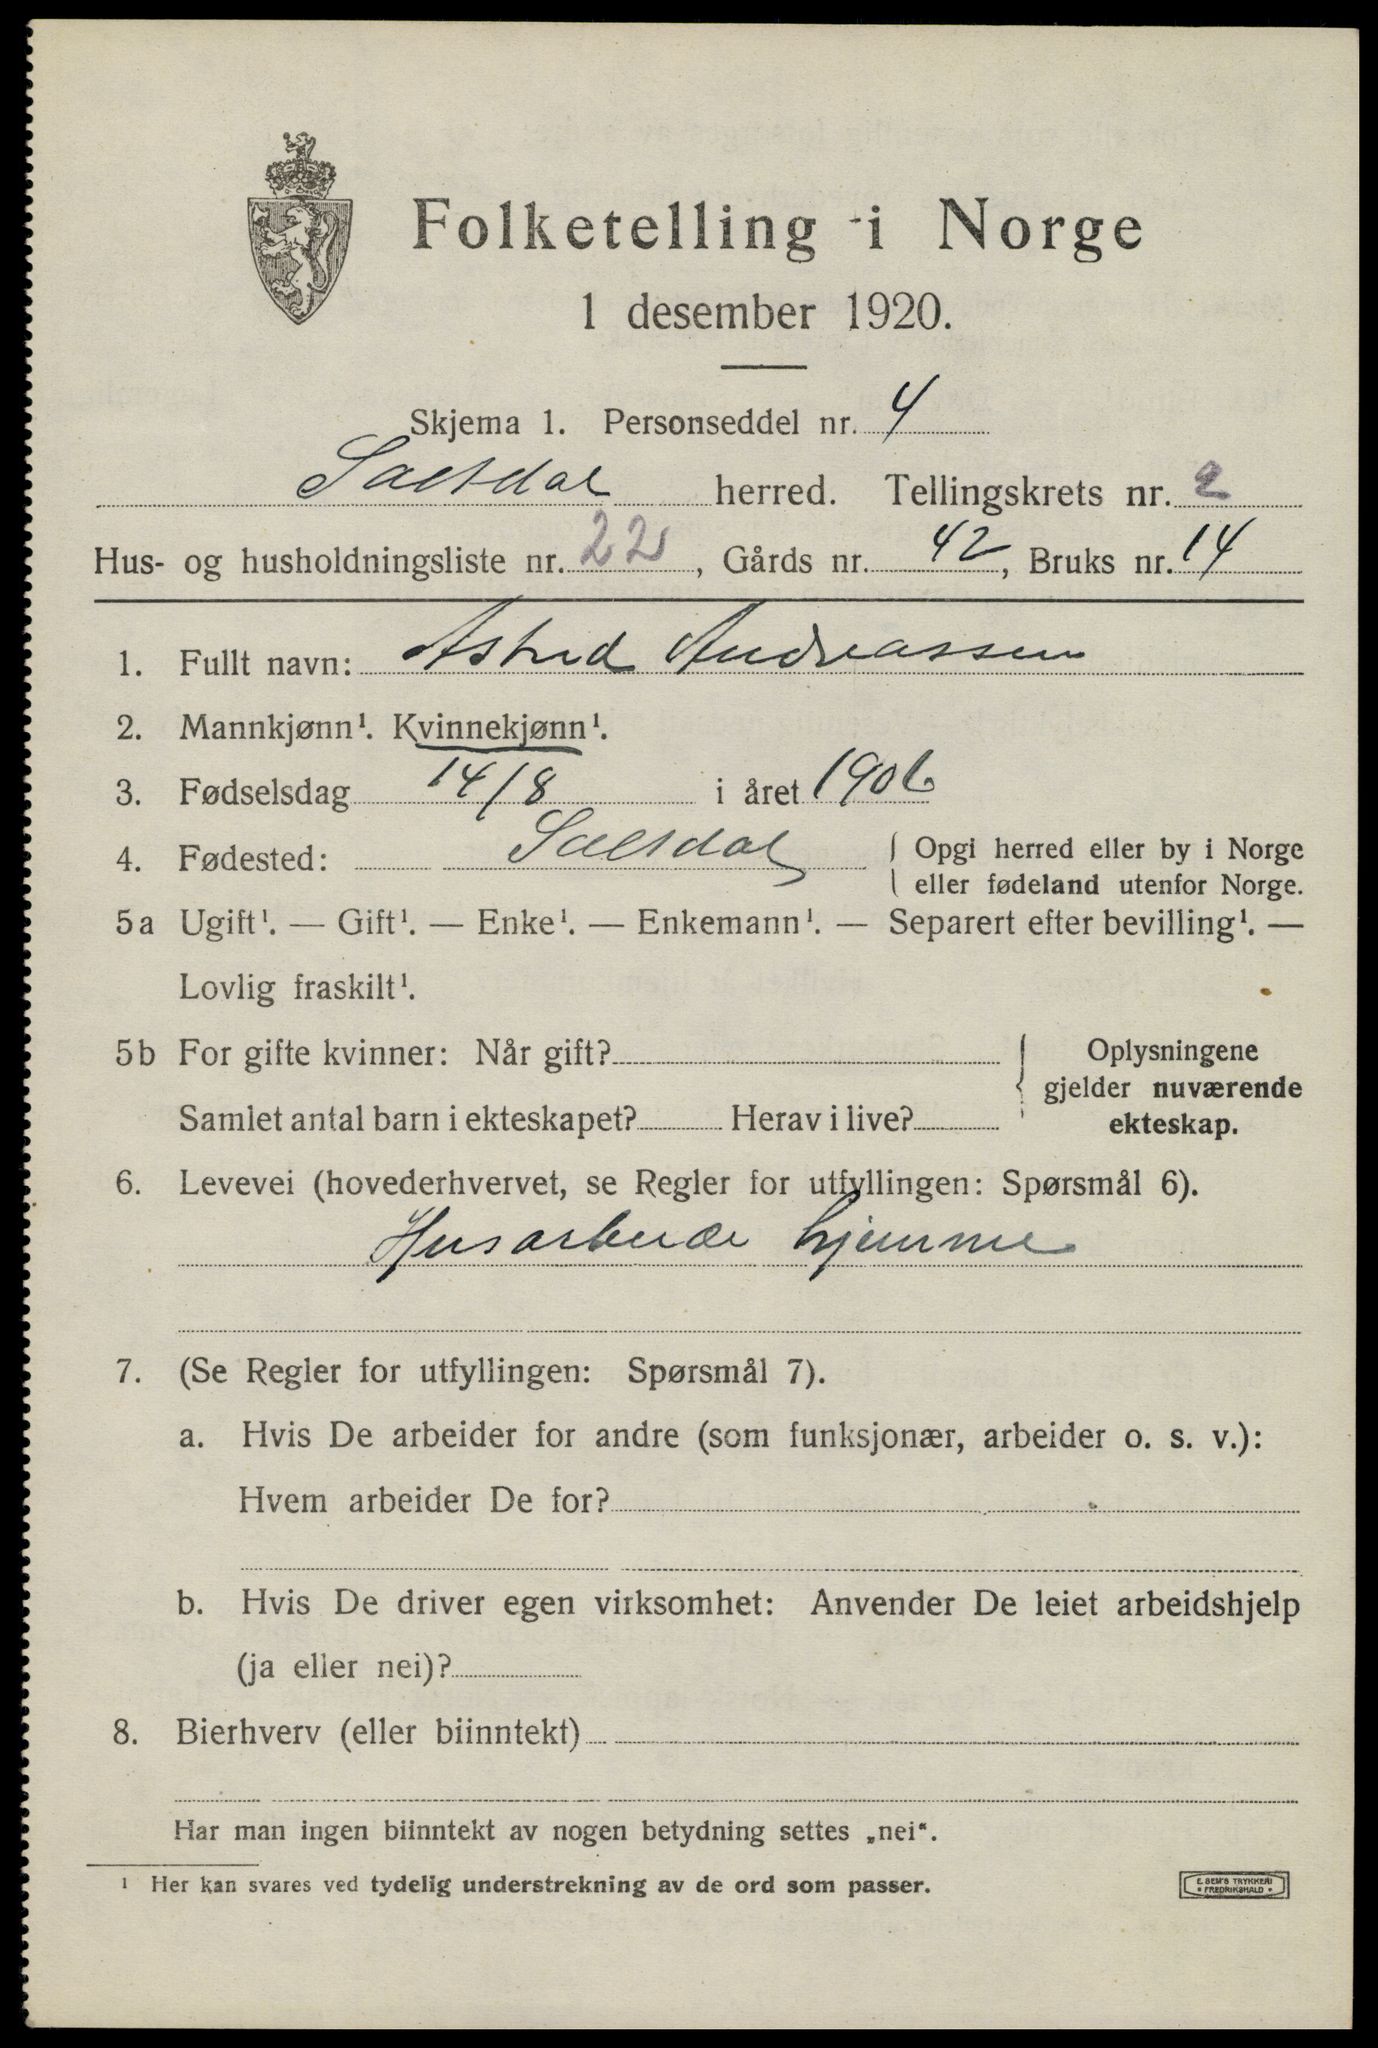 Folketelling i Norge
1 desember 1920.
Skjema 1. Personseddel nr. 4
Saltdal herred. Tellingskrets nr. 2
Hus- og husholdningsliste nr. 22, Gårds nr. 42, Bruks nr. 14
1. Fullt navn: Astrid Andreassen
2. Mannkjønn¹. Kvinnekjønn¹.
3. Fødselsdag 14/8 i året 1906
4. Fødested: Saltdal { Opgi herred eller by i Norge
eller fødeland utenfor Norge.
5a Ugift¹. — Gift¹. — Enke¹. — Enkemann¹. — Separert efter bevilling¹. —
Lovlig fraskilt¹.
5b For gifte kvinner: Når gift? { Oplysningene
gjelder nuværende
Samlet antal barn i ekteskapet? Herav i live? ekteskap.
6. Levevei (hovederhvervet, se Regler for utfyllingen: Spørsmål 6).
Husarbeide hjemme
7. (Se Regler for utfyllingen: Spørsmål 7).
a. Hvis De arbeider for andre (som funksjonær, arbeider o. s. v.):
Hvem arbeider De for?
b. Hvis De driver egen virksomhet: Anvender De leiet arbeidshjelp
(ja eller nei)?
8. Bierhverv (eller biinntekt)
Har man ingen biinntekt av nogen betydning settes „nei“.
¹ Her kan svares ved tydelig understrekning av de ord som passer.
E. SEM'S TRYKKERI
• FREDRIKSHALD •